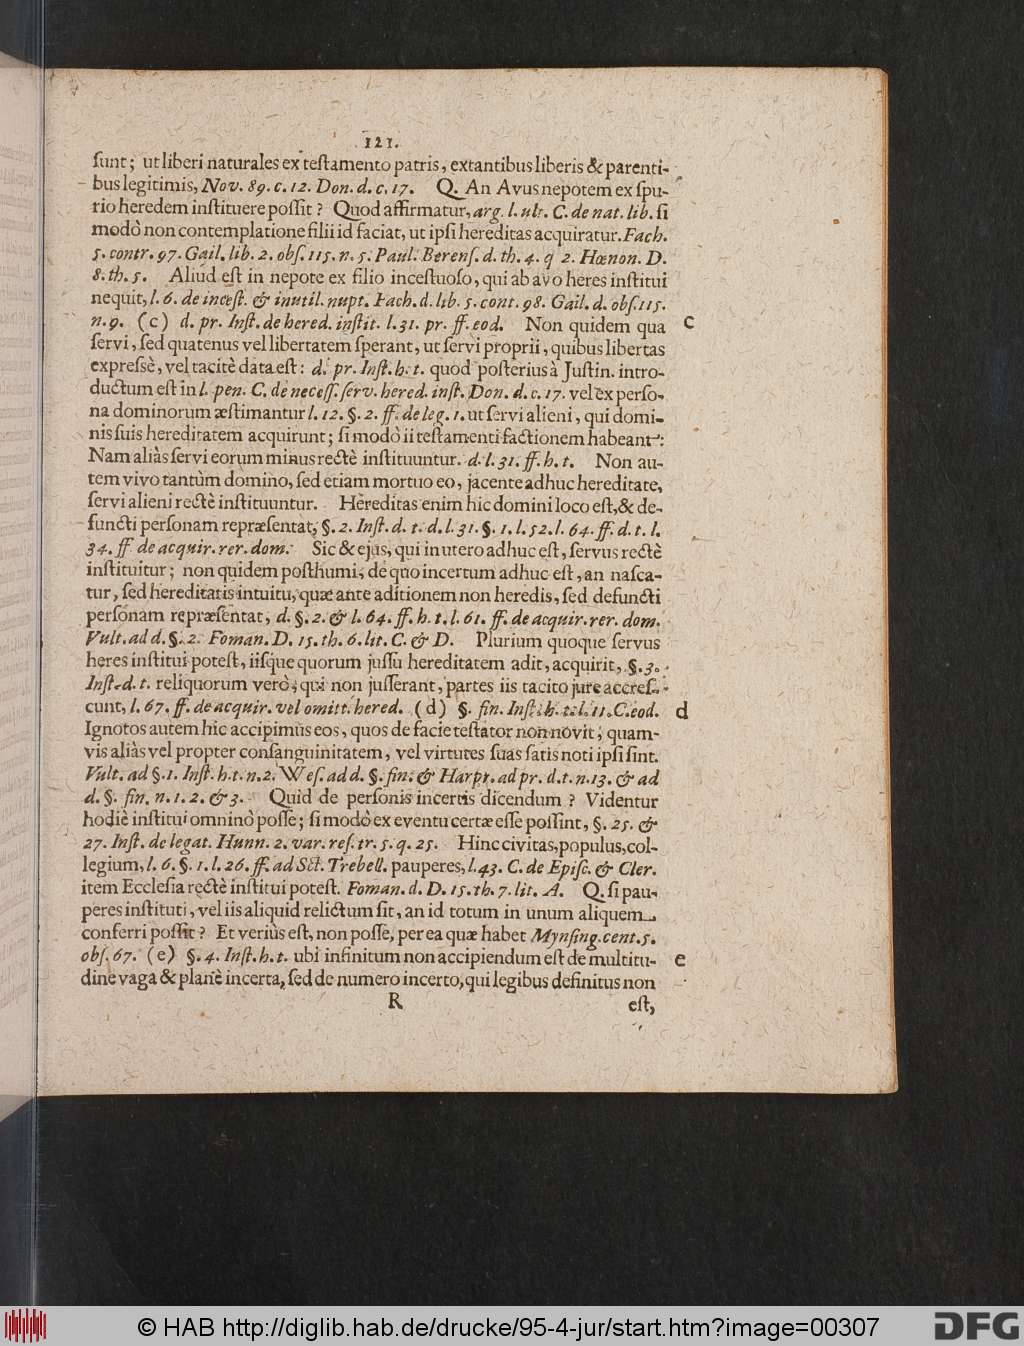 121.
ſunt; ut liberi naturales ex teſtamento patris, extantibus liberis & parenti-
bus legitimis, Nov. 89. c. 12. Don. d. c. 17. Q. An Avus nepotem ex ſpu-
rio heredem inſtituere poſſit? Quod affirmatur, arg. l. ult. C. de nat. lib. ſi
modò non contemplatione filii id faciat, ut ipſi hereditas acquiratur. Fach.
5. contr. 97. Gail. lib. 2. obſ. 115. n. 5. Paul. Berenſ. d. th. 4. q 2. Hœnon. D.
8. th. 5. Aliud eſt in nepote ex filio inceſtuoſo, qui ab avo heres inſtitui
nequit, l. 6. de inceſt. & inutil. nupt. Fach. d. lib. 5. cont. 98. Gail. d. obſ. 115.
n. 9. (c) d. pr. Inſt. de hered. inſtit. l. 31. pr. ff. eod. Non quidem qua
c
ſervi, ſed quatenus vel libertatem ſperant, ut ſervi proprii, quibus libertas
expreſſè, vel tacitè data eſt: d. pr. Inſt. h. t. quod poſterius à Juſtin. intro-
ductum eſt in l. pen. C. de neceſſ. ſerv. hered. inſt. Don. d. c. 17. vel ex perſo-
na dominorum æſtimantur l. 12. §. 2. ff. de leg. 1. ut ſervi alieni, qui domi-
nis ſuis hereditatem acquirunt; ſi modò ii teſtamenti factionem habeant:
Nam aliàs ſervi eorum minus rectè inſtituuntur. d. l. 31. ff. h. t. Non au-
tem vivo tantùm domino, ſed etiam mortuo eo, jacente adhuc hereditate,
ſervi alieni rectè inſtituuntur. Hereditas enim hic domini loco eſt, & de-
functi perſonam repræſentat, §. 2. Inſt. d. t. d. l. 31. §. 1. l. 52. l. 64. ff. d. t. l.
34. ff de acquir. rer. dom. Sic & ejus, qui in utero adhuc eſt, ſervus rectè
inſtituitur; non quidem poſthumi, de quo incertum adhuc eſt, an naſca-
tur, ſed hereditatis intuitu, quæ ante aditionem non heredis, ſed defuncti
perſonam repræſentat, d. §. 2. & l. 64. ff. h. t. l. 61. ff. de acquir. rer. dom.
Vult. ad d. §. 2. Foman. D. 15. th. 6. lit. C. & D. Plurium quoque ſervus
heres inſtitui poteſt, iisque quorum juſſu hereditatem adit, acquirit, §. 3.
Inſt. d. t. reliquorum verò, qui non juſſerant, partes iis tacito jure accreſ-
cunt, l. 67. ff. de acquir. vel omitt. hered. (d) §. fin. Inſt. h. t. l. 11. C. eod.
d
Ignotos autem hic accipimus eos, quos de facie teſtator non novit; quam-
vis aliàs vel propter conſanguinitatem, vel virtutes ſuas ſatis noti ipſi ſint.
Vult. ad §. 1. Inſt. h. t. n. 2. Weſ. ad d. §. fin. & Harpr. ad pr. d. t. n. 13. & ad
d. §. fin. n. 1. 2. & 3. Quid de perſonis incertis dicendum? Videntur
hodiè inſtitui omninò poſſe; ſi modò ex eventu certæ eſſe poſſint, §. 25. &
27. Inſt. de legat. Hunn. 2. var. reſ. tr. 5. q. 25. Hinc civitas, populus, col-
legium, l. 6. §. 1. l. 26. ff. ad Sct. Trebell. pauperes, l. 43. C. de Epiſc. & Cler.
item Eccleſia rectè inſtitui poteſt. Foman. d. D. 15. th. 7. lit. A. Q. ſi pau-
peres inſtituti, vel iis aliquid relictum ſit, an id totum in unum aliquem
conferri poſſit? Et verius eſt, non poſſe, per ea quæ habet Mynſing. cent. 5.
obſ. 67. (e) §. 4. Inſt. h. t. ubi infinitum non accipiendum eſt de multitu-
e
dine vaga & planè incerta, ſed de numero incerto, qui legibus definitus non
R
eſt,
© HAB http://diglib.hab.de/drucke/95-4-jur/start.htm?image=00307
DFG